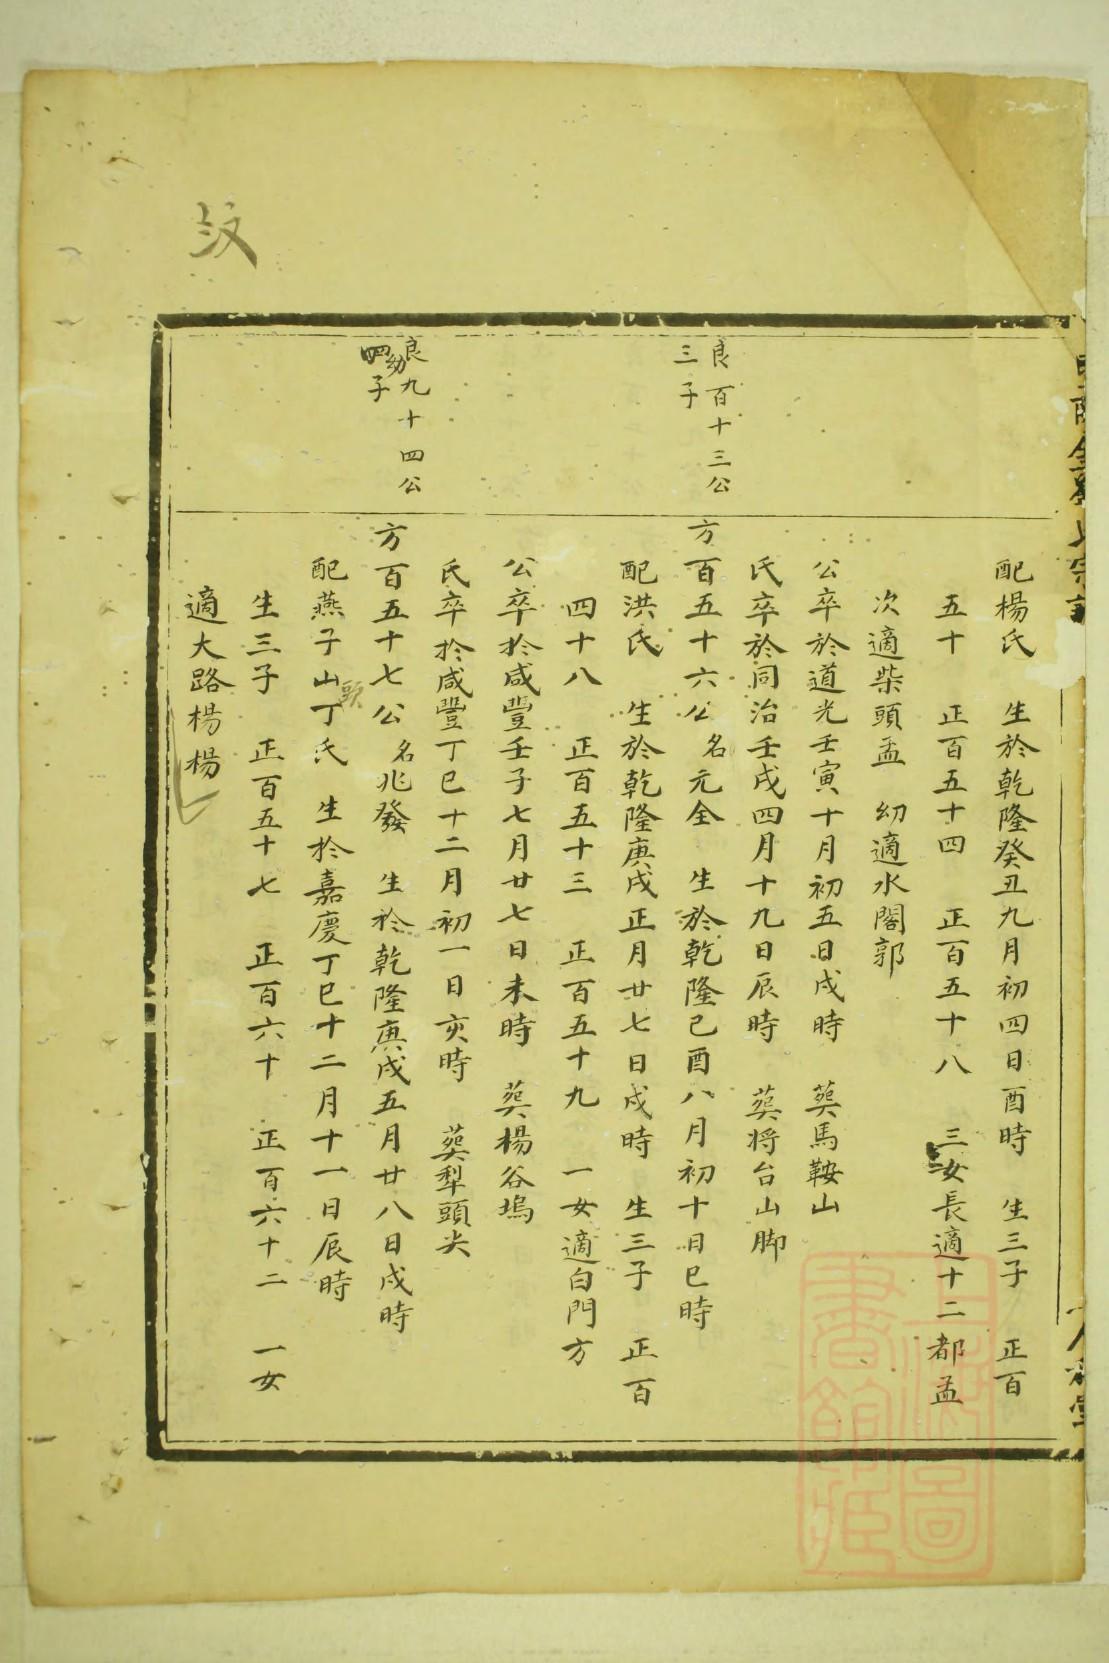 配楊氏　生於乾隆癸丑九月初四日酉時　生三子　正百
五十　正百五十四　正百五十八　三女長適十二都孟
次適柴頭孟　幼適水閣郭
公卒於道光壬寅十月初五日戌時　葬馬鞍山
氏卒於同治壬戌四月十九日辰時　葬将台山脚
良百十三公
三子
方百五十六公　名元全　生於乾隆己酉八月初十日巳時
配洪氏　生於乾隆庚戌正月廿七日戌時　生三子　正百
四十八　正百五十三　正百五十九　一女適白門方
公卒於咸豐壬子七月廿七日未時　葬楊谷塢
氏卒於咸豐丁巳十二月初一日亥時　葬犁頭尖
良九十四公
幼子
方百五十七公　名兆發　生於乾隆庚戌五月廿八日戌時
配燕子山頭丁氏　生於嘉慶丁巳十二月十一日辰時
生三子　正百五十七　正百六十　正百六十二　一女
適大路楊楊
上海圖
書館藏